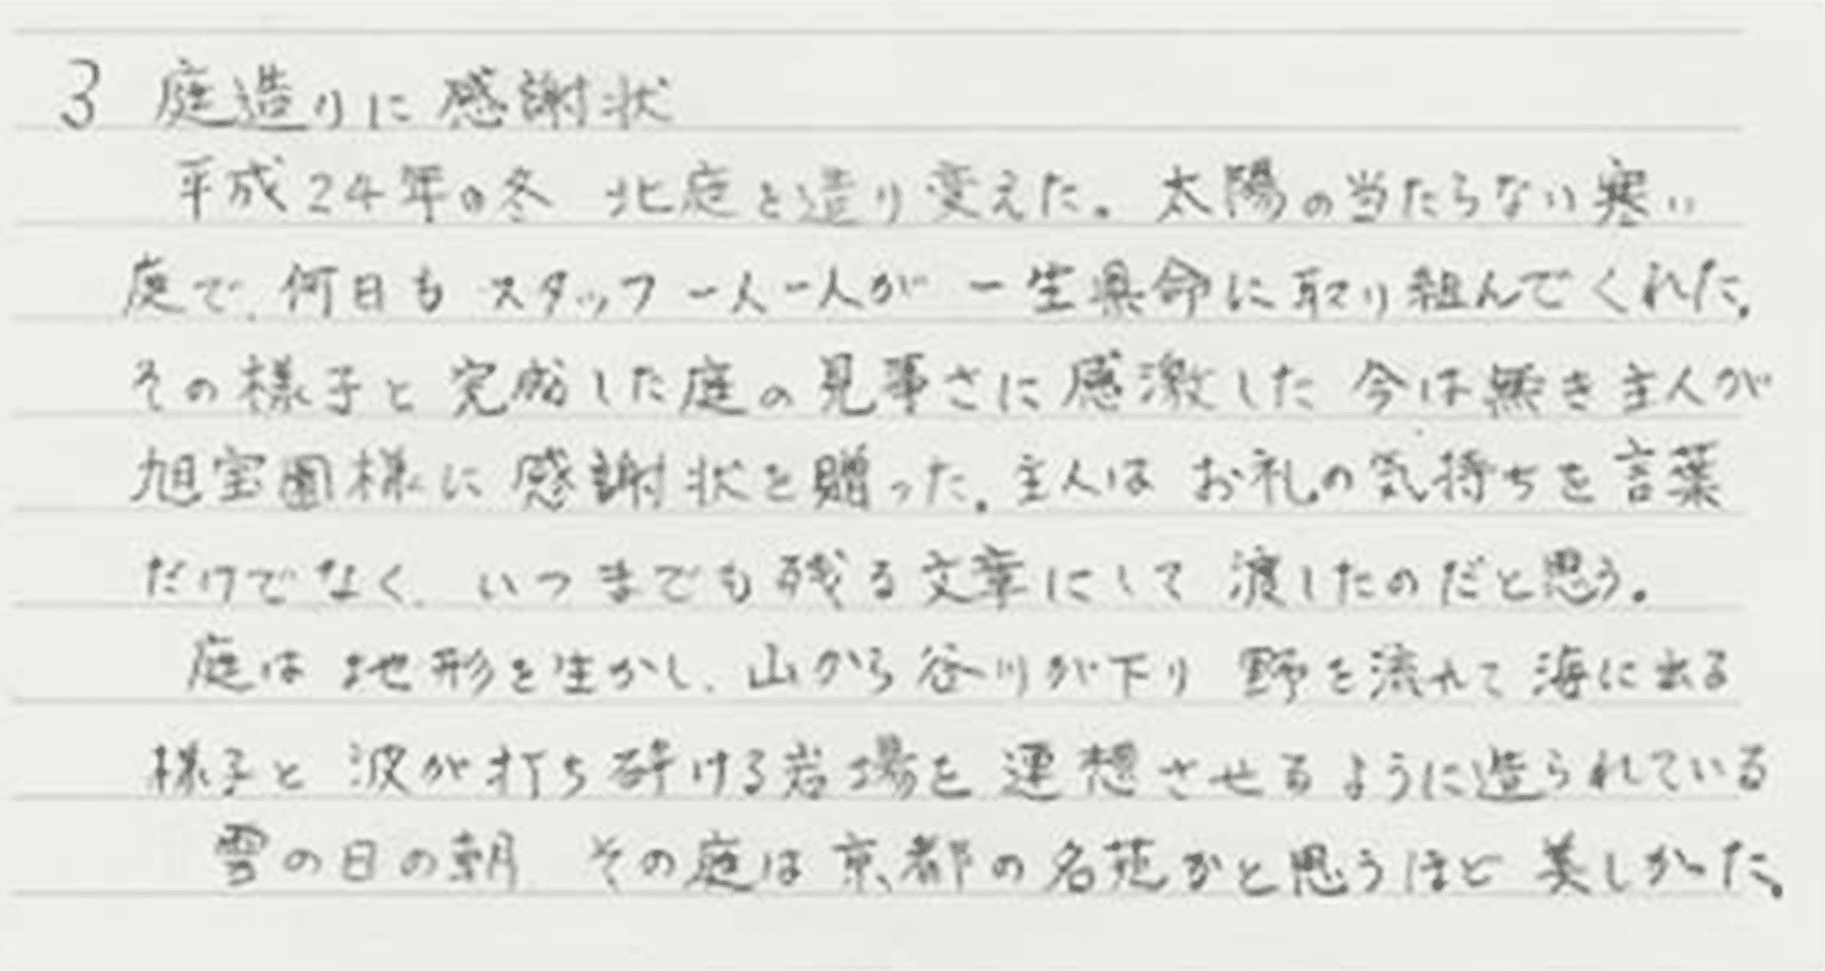 3 庭造りに感謝状
平成24年の冬 北庭を造り変えた。太陽の当たらない寒い
庭で、何日も スタッフ一人一人が 一生県命に取り組んでくれた。
その様子と完成した庭の見事さに感激した 今は無き主人が
旭宝園様に感謝状を贈った。主人は お礼の気持ちを言葉
だけでなく、いつまでも残る文章にして 渡したのだと思う。
庭は 地形を生かし、山から谷川が下り 野を流れて 海に出る
様子と 波が打ち砕ける岩場を 連想させるように造られている
雪の日の朝、その庭は京都の名苑かと思うほど 美しかった。